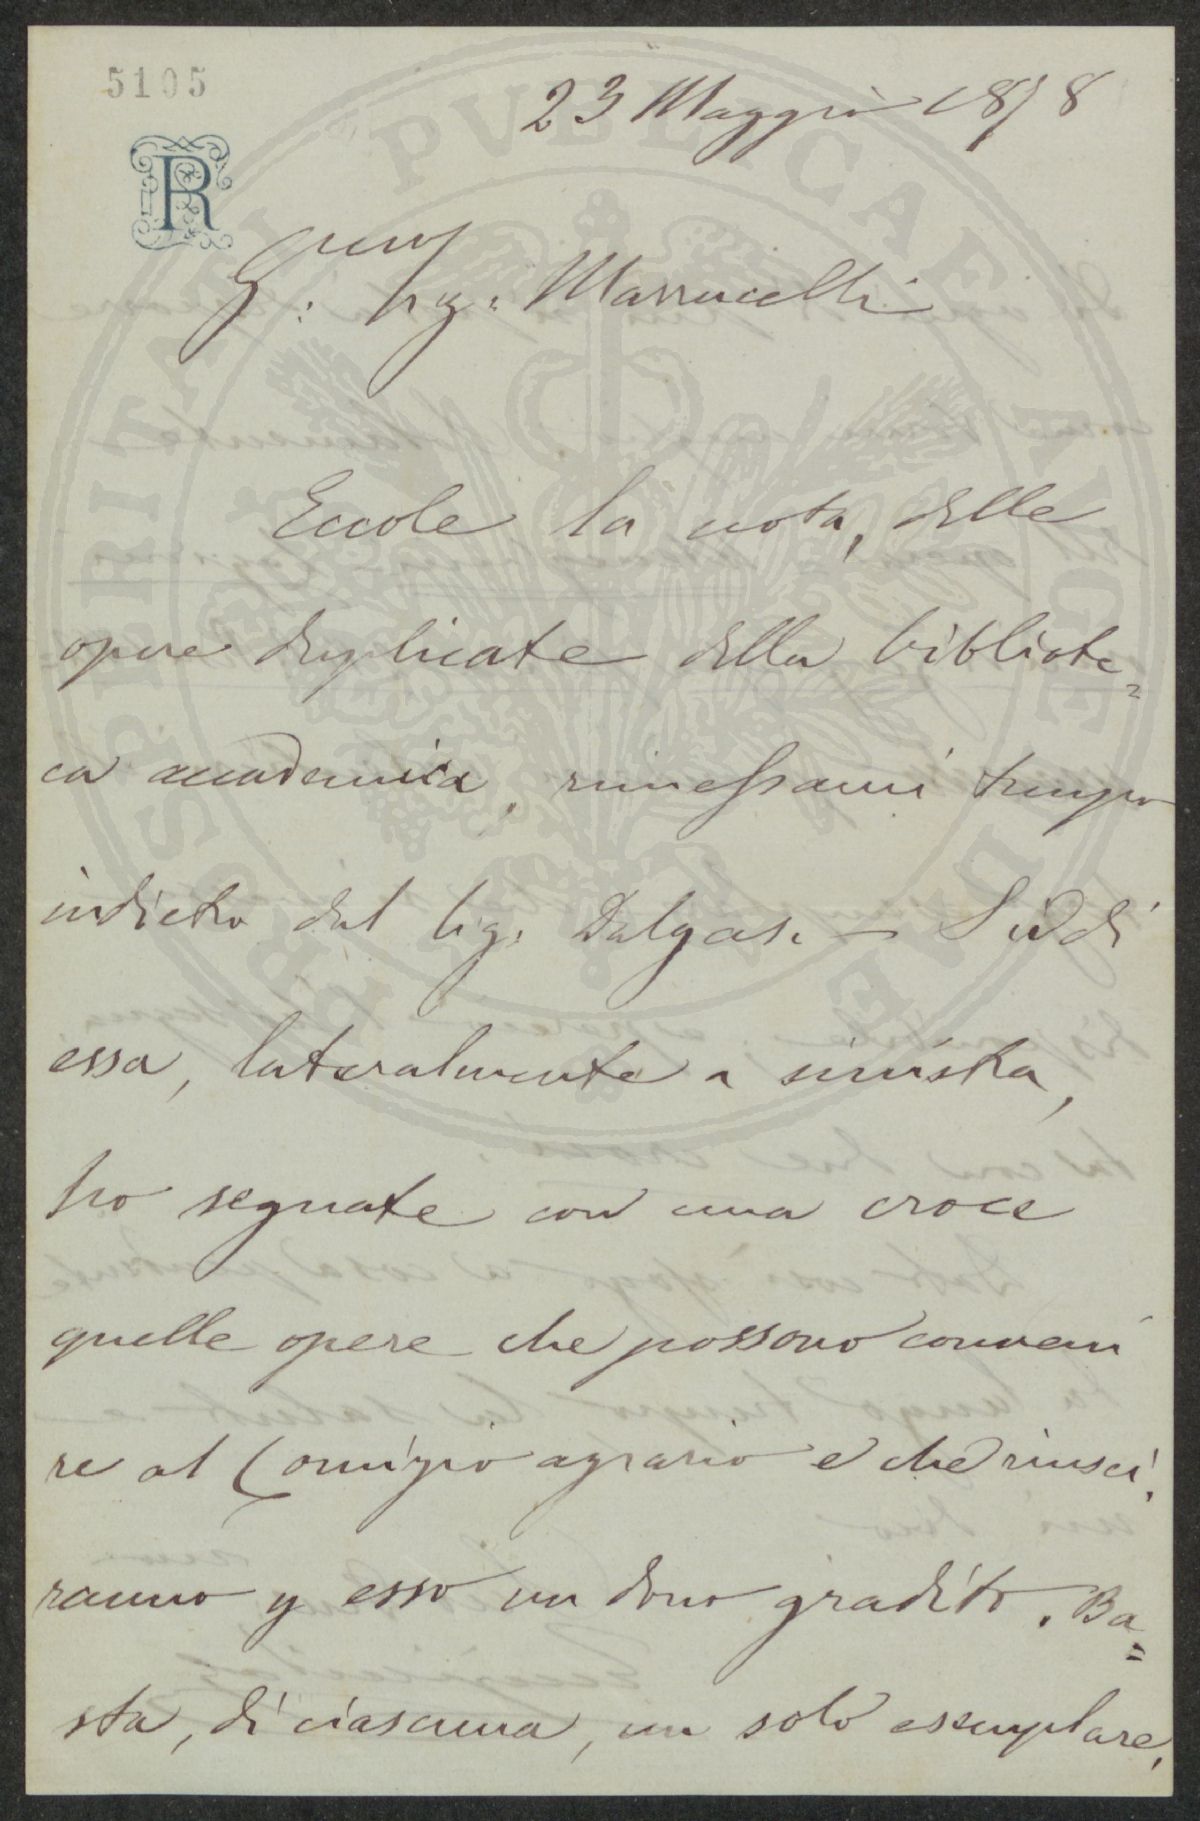 5105
23 Maggio 1878
R
Sig. Marrucelli
Eccole la nota, delle
opere duplicate della bibliote=
ca accademica, rimessami tempo
indietro dal Sig. Dalgas. — Su di
essa, lateralmente a sinistra,
ho segnate con una croce
quelle opere che possono conveni
re al Comizio agrario e che riusci,
ranno p esso un dono gradito. Ba=
sta, di ciascuna, un solo esemplare,
PROSPERITATI PUBLICAE AUGENDAE